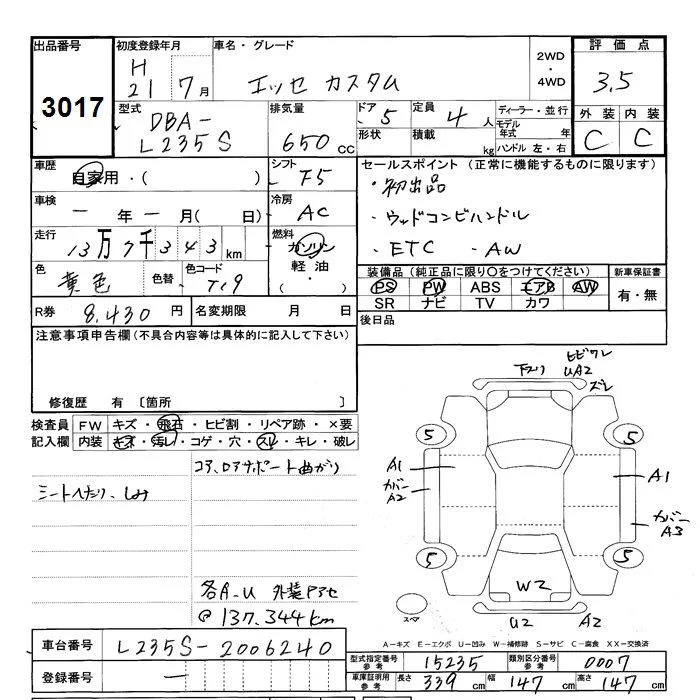 出品番号 初度登録年月 車名・グレード 評価点
3017 H 21 7月 エッセ カスタム 2WD ・ 4WD 3.5
型式 排気量 ドア 定員 ディーラー・並行 外装 内装
DBA- L235S 650cc 5 4人 モデル年式 年 C C
形状 積載 kg ハンドル 左・右
車歴 自家用・( ) シフト F5
セールスポイント (正常に機能するものに限ります)
・初出品
車検 ー年ー月( 日) 冷房 AC
・ウッドコンビハンドル
走行 13万7千343km 燃料 ガソリン 軽油・( )
・ETC ・AW
色 黄色 色替 色コード T19
装備品 (純正品に限り○をつけてください) 新車保証書
PS PW ABS エアB AW 有・無
SR ナビ TV カワ
R券 8,430円 名変期限 月 日
後日品
注意事項申告欄 (不具合内容等は具体的に記入して下さい)
修復歴 有 〔箇所 〕
検査員記入欄 FW キズ・飛石・ヒビ割・リペア跡・×要
内装 キズ・汚レ・コゲ・穴・スレ・キレ・破レ
コア、ロアサポート曲がり
シートへたり、しみ
各A-U 外装アアセ
@137.344km
下スリ ヒビワレ UA2 ズレ
5 5
A1 A1
カバー A2 カバー A3
5 5
W2
スペア U2 A2
A-キズ E-エクボ U-凹み W-補修跡 S-サビ C-腐食 XX-交換済
車台番号 L235S-2006240
登録番号 ー
型式指定番号 参考 15235 類別区分番号 参考 0007
車庫証明用 参考 長さ 339cm 幅 147cm 高さ 147cm